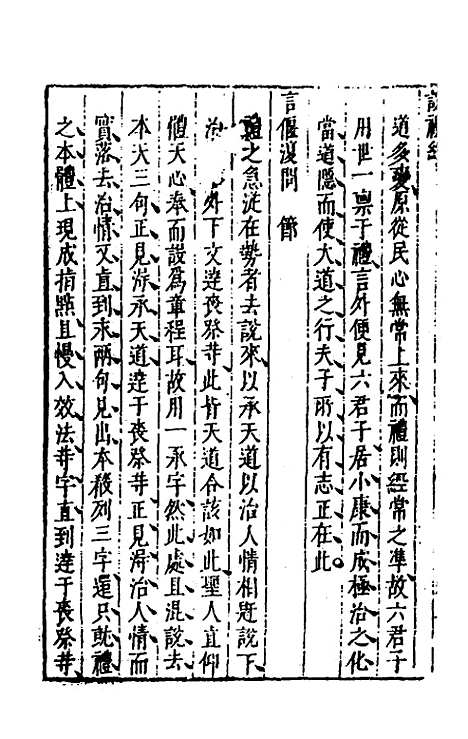 道多變原從民心無常上來而禮則經常之準故六君子
用世一稟于禮言外便見六君子居小康而成極治之化
當道隱而使大道之行夫子所以有志正在此
言偃復問節
禮之急從在勢者去說來以承天道以治人情相趕說下
治外下文達喪祭等此皆天道合該如此聖人直仰
體天心奉而設爲章程耳故用一承字然此處且混說去
本大三句正見得承天道達于喪祭等正見得治人情而
實落去治情又直到末兩句見出本殽列三字還只就禮
之本體上現成指點且慢入效法等字直到達于喪祭等